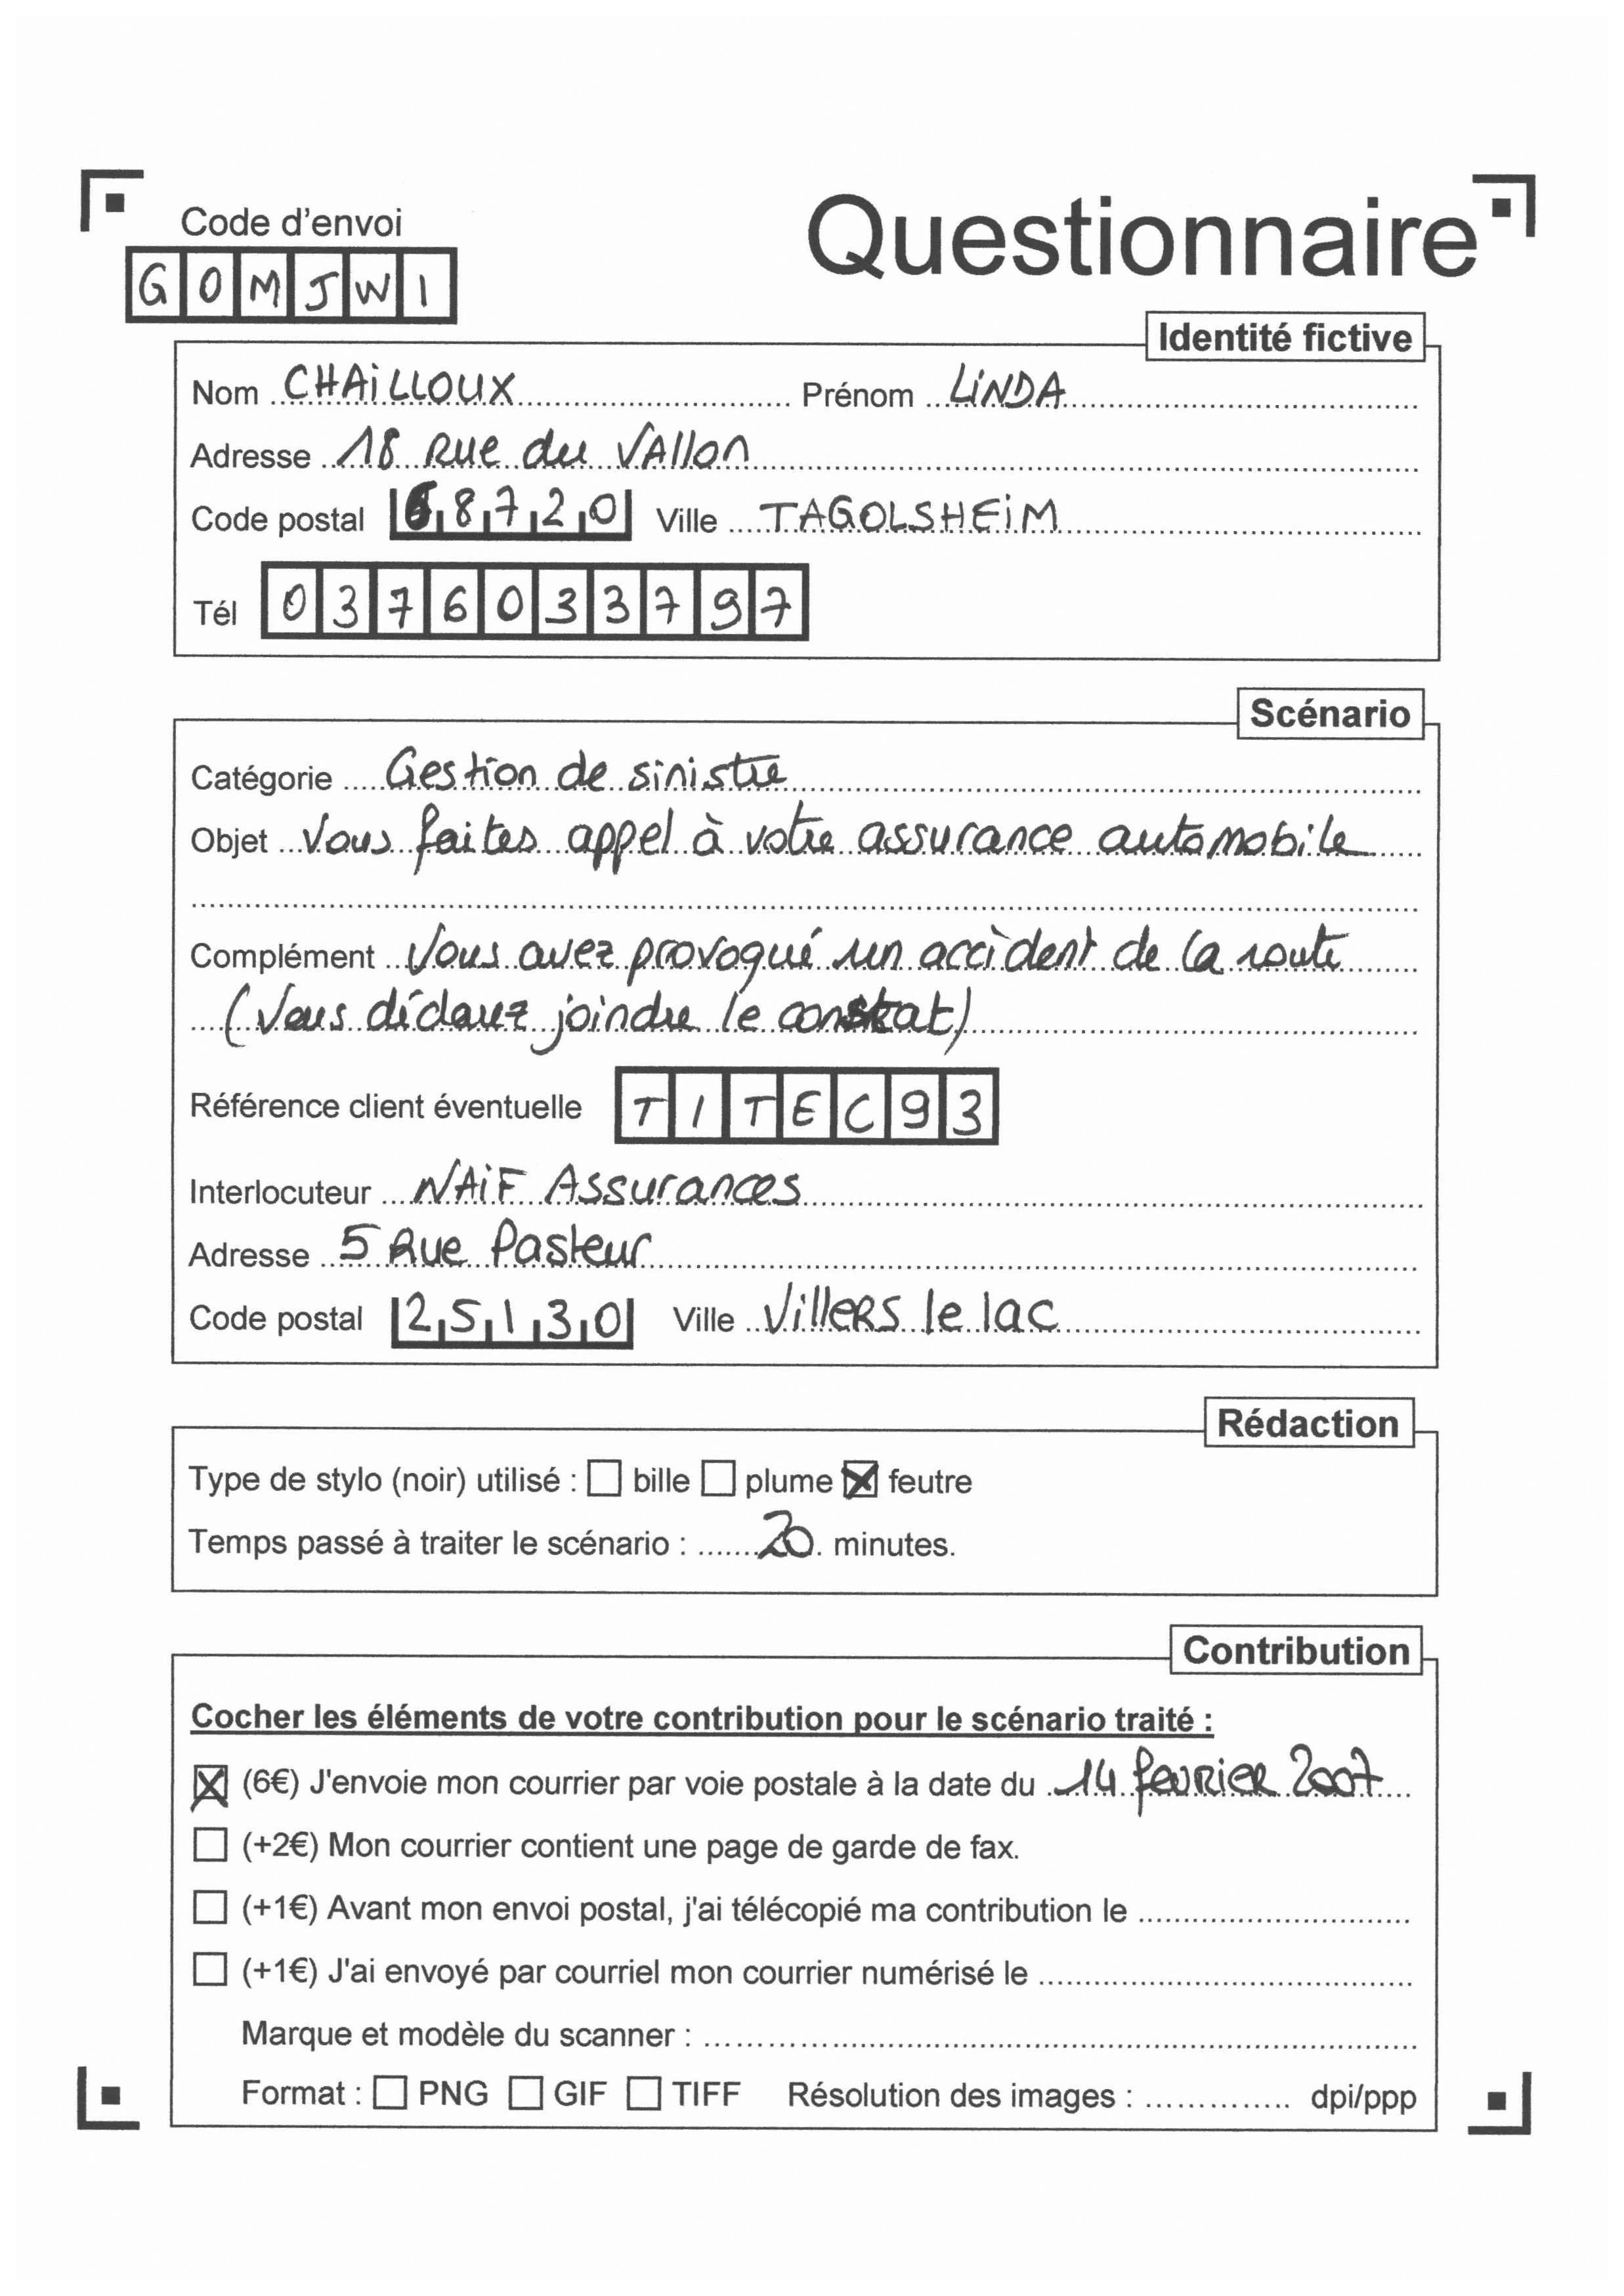 Code d'envoi
Questionnaire
G O M J W I
Identité fictive
Nom CHAILLOUX Prénom LINDA
Adresse 18 Rue du Vallon
Code postal 68720 Ville TAGOLSHEIM
Tél 0376033797
Scénario
Catégorie Gestion de sinistre
Objet Vous faites appel à votre assurance automobile
Complément Vous avez provoqué un accident de la route
(Vous déclarez joindre le constat)
Référence client éventuelle TITEC93
Interlocuteur NAIF Assurances
Adresse 5 Rue Pasteur
Code postal 25130 Ville Villers le lac
Rédaction
Type de stylo (noir) utilisé : ☐ bille ☐ plume ☒ feutre
Temps passé à traiter le scénario : 20 minutes.
Contribution
Cocher les éléments de votre contribution pour le scénario traité :
☒ (6€) J'envoie mon courrier par voie postale à la date du 14 février 2007
☐ (+2€) Mon courrier contient une page de garde de fax.
☐ (+1€) Avant mon envoi postal, j'ai télécopié ma contribution le
☐ (+1€) J'ai envoyé par courriel mon courrier numérisé le
Marque et modèle du scanner :
Format : ☐ PNG ☐ GIF ☐ TIFF Résolution des images : dpi/ppp